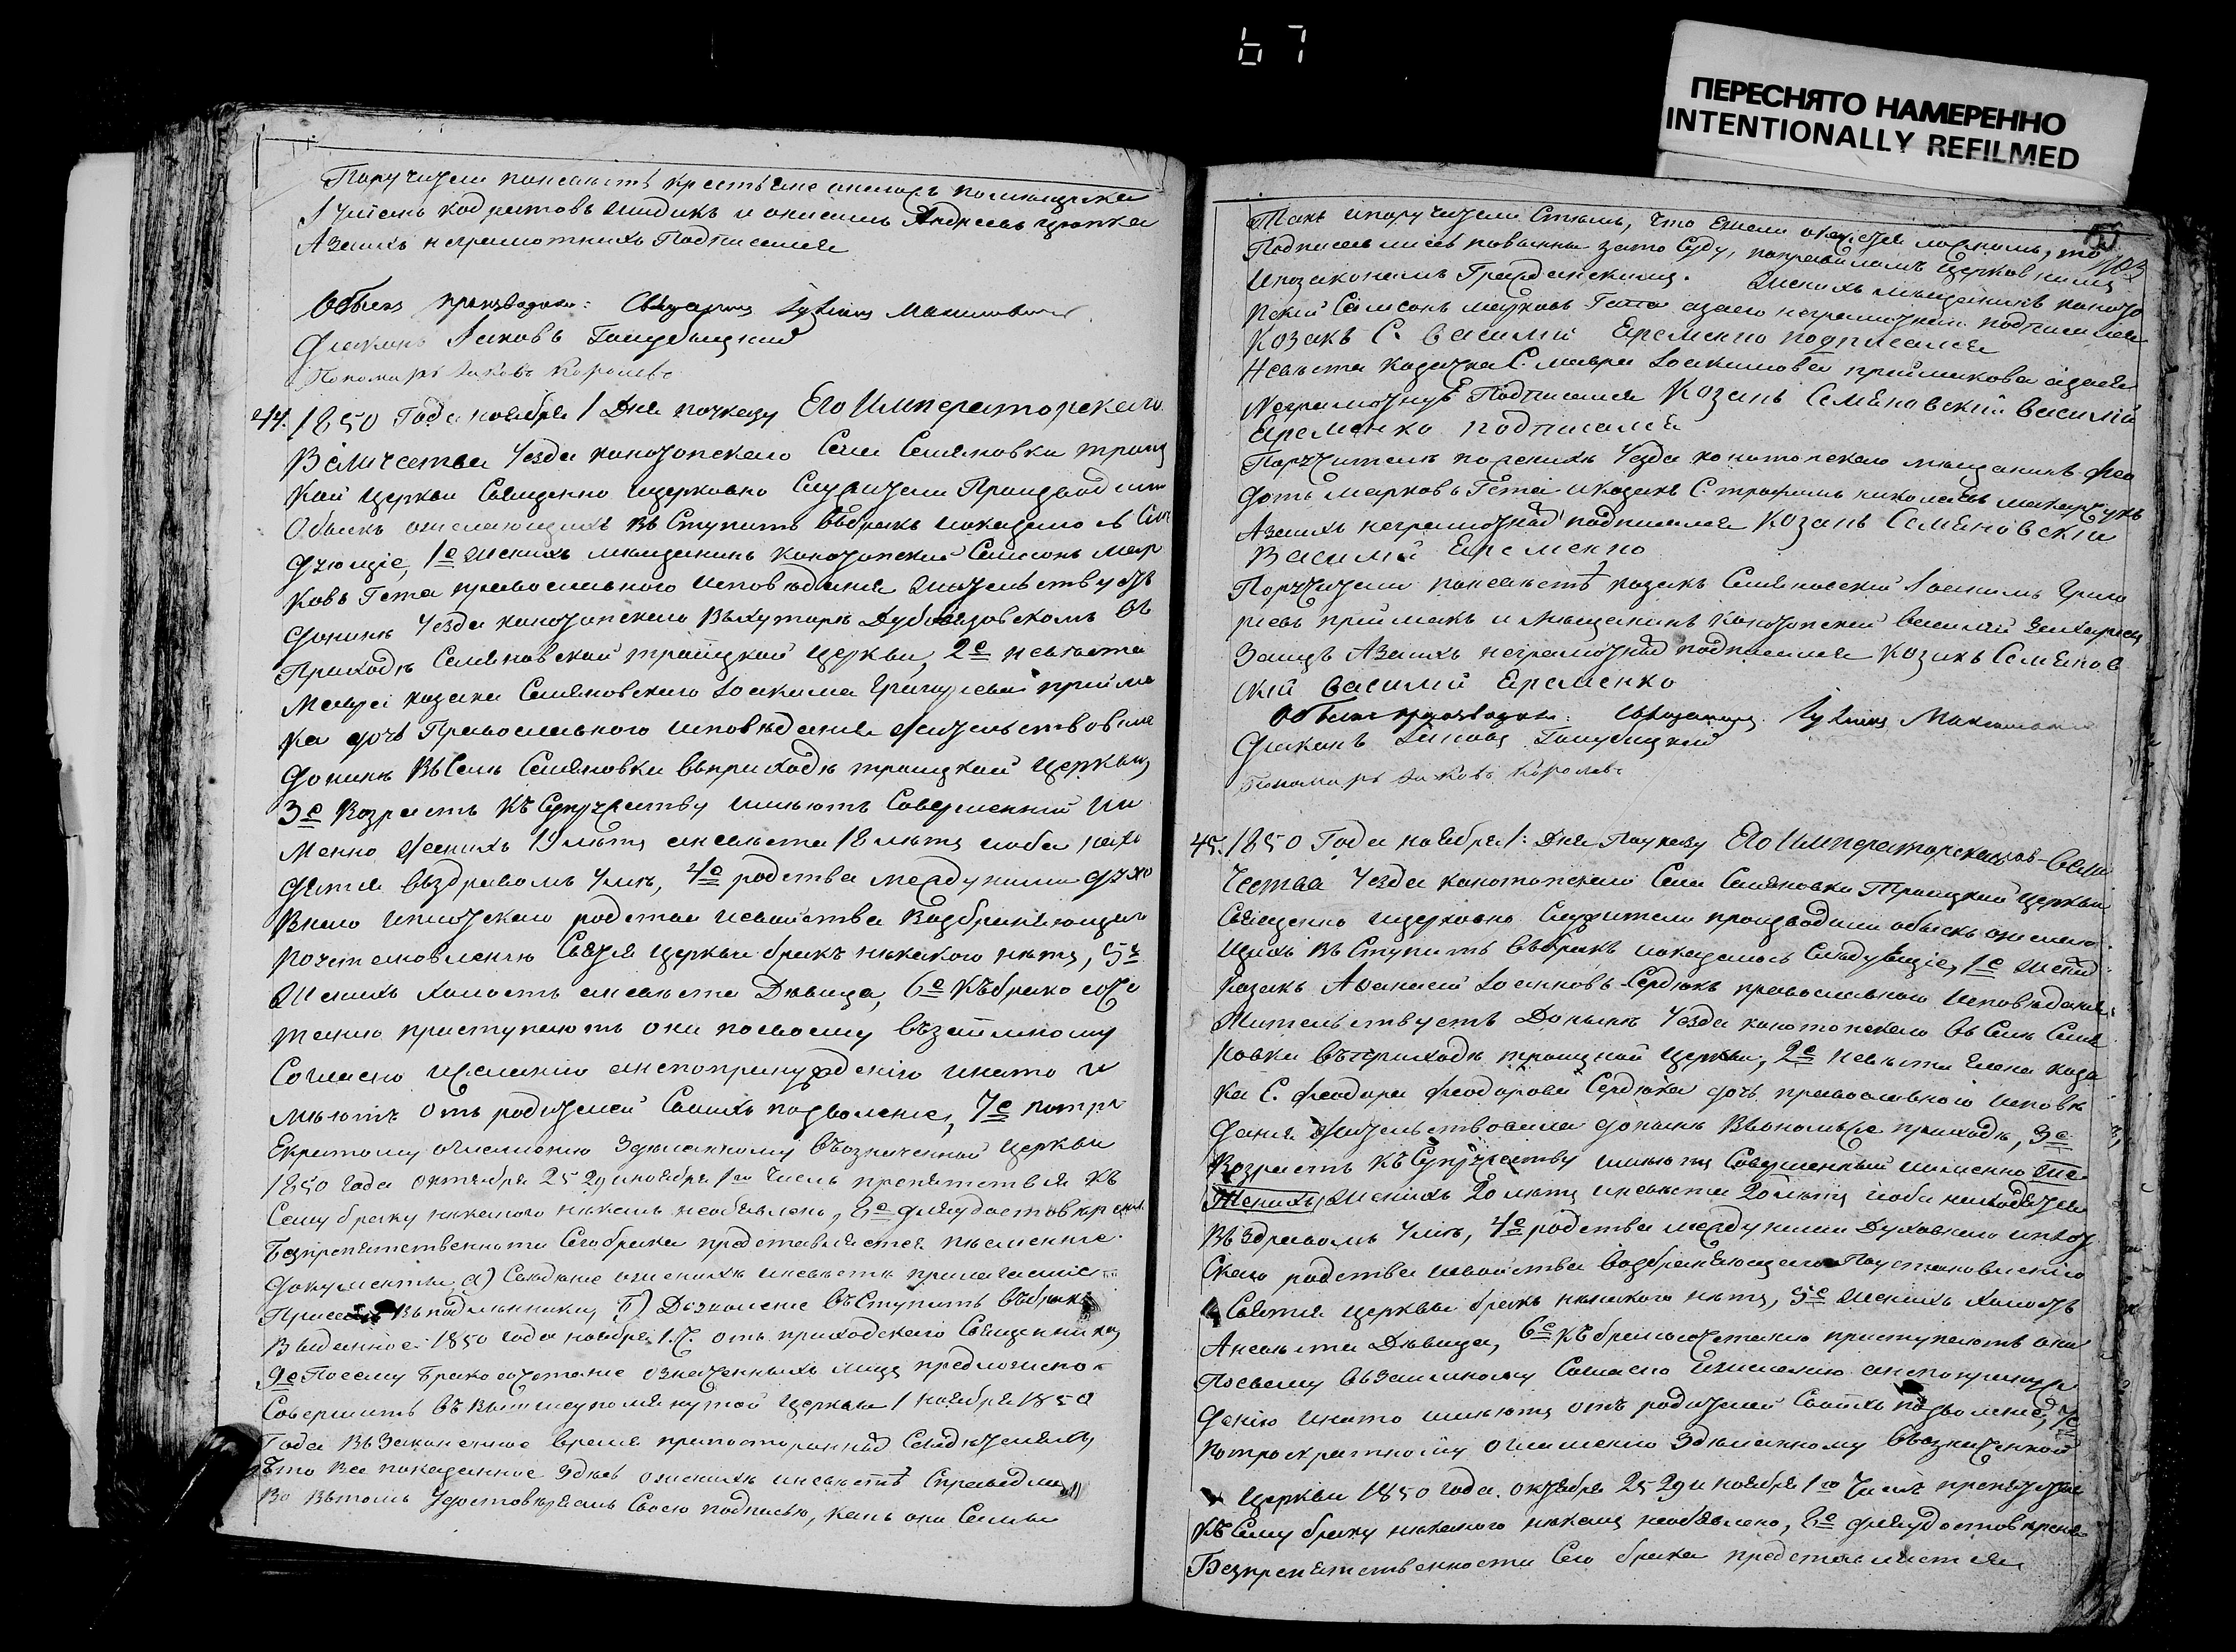 67
ПЕРЕСНЯТО НАМЕРЕННО
INTENTIONALLY REFILMED
Поручители по невѣстѣ крестьяне помѣщика
и Андреевъ
А за ихъ неграмотнихъ Подписался
Обыскъ производили: Священникъ
Діаконъ Іаковъ Голубицкий
Пономарь Іаковъ Королевъ
44. 1850 Года ноября 1 Дня по указу Его Императорскаго
Величества Уезда конотопскаго Села Семяновки троиц
кой церкви Священно ицерковно Служители Производили
Обыскъ ожелающихъ въ Ступить въбракъ иоказалось Слѣ
дующіе, 1е женихъ мещанинъ конотопский Самсонъ мар
ковъ Гета православного исповѣданія жительствуетъ
донинѣ Уезда конотопскаго въхуторѣ Дубовязовскомъ въ
Приходѣ Семяновской троицкой церкви, 2е невѣста
мавра козака Семяновскаго Іоакима Григориева прийма
ка дочь Православного исповѣдания жительствовала
донинѣ въСелѣ Семяновки въприходѣ троицкой церкви,
3е Возрастъ къ Супружеству имѣютъ Совершенній Им
менно женихъ 19 лѣтъ аневѣста 18 лѣтъ иоба нахо
дятся въздравомъ умѣ, 4е родства между ними духо
внаго иплотскаго родства исвойства Возбраняющаго
поустановленію Святія церкви бракъ никакого нѣтъ, 5е
Женихъ холостъ аневѣста Дѣвица, 6е къ бракосоче
танію приступаютъ они посвоему взаимному
Согласію ижеланію анепопринуждѣнію инато и
мѣютъ отъ родителей Своихъ позволение, 7е потро
Екратному огласенію Здѣланному въозначенной церкви
1850 года октября 25 29 иноября 1го числъ препятствія къ
Сему браку никакого никемъ необявлено, 8е дляудостовѣрения
Безпрепятственности Сегобрака представляется писменние
документи а) Свѣдение оженихѣ иневѣстѣ
въподлиннику, Б) Дозволение въСтупить въбракъ
Виданное 1850 года ноября 1.Ч. отъ приходскаго Священника,
9е Посему Бракосочетание означенныхъ лицъ предположено
Совершить въ вышеупомянутой церкви 1 ноября 1850
Года въЗаконенное время припостороннихъ Свидѣтеляхъ,
Что все показанное Здѣсь оженихѣ иневѣстѣ Справедли
во вътомъ Удостовѣряемъ Своею подписью, какъ они Сами
Такъ ипоручители Стемъ, что Ежели окажется ложнымъ, то
Подписавшиеся повинни зато Суду, поправиламъ Церковнимъ
ипозаконамъ Гражданскимъ. Женихъ мещанинъ коното
пский Самсонъ марковъ Гета азаего неграмотнаго подписался
Козакъ С. василий Еременко подписался
Невѣста казачка С. мавра Іоакимова приймакова азаея
неграмотную Подписался Козакъ Семяновский василий
Еременко подписался
Поручители поженихѣ Уезда конотопскаго мещанинъ фео
дотъ марковъ Гета икозакъ С. трофимъ николаевъ
Азаихъ неграмотнихъ подписался козакъ Семяновскій
Василий Еременко
Поручители поневѣстѣ козакъ Семяновский Іоакимъ Григо
риевъ приймакъ и мещанинъ конотопский василий
Заицъ Азаихъ неграмотнихъ подписался козакъ Семянов
скій василий Еременко
Обыскъ производили: Священникъ
Діаконъ Іаковъ Голубицкий
Пономарь Іаковъ Королевъ
45. 1850 Года ноября 1: Дня Поуказу Его Императорскаго Вели
чества Уезда конотопскаго Села Семяновки Троицкой Церкви
Священно ицерковно Служители производили обыскъ ожелаю
щихъ въСтупить въбракъ иоказалось Слѣдующіе, 1е женихъ
Козакъ Афанасий Іоанновъ Сердюкъ православного исповѣдания
Жительствуетъ Донынѣ Уезда конотопскаго въСелѣ Семя
новки въприходѣ троицкой церкви, 2е невѣста Елена коза
ка С. Феодора Феодорова Сердюка дочь православного исповѣ
дания жительствовала донынѣ въономже приходѣ, 3е
Возрастъ къСупружеству имѣютъ Совершенный именно
Женихъ, Женихъ 20 лѣтъ иневѣста 20 лѣтъ иоба находятся
въздравомъ умѣ, 4е родства между ними Духовнаго иплот
скаго родства исвойства возбраняющаго Поустановленію
Святія церкви бракъ никакого нѣтъ, 5е женихъ холостъ
Аневѣста Дѣвица, 6е къбракосочетанію приступаютъ они
Посвоему взаимному Согласію ижеланію анепопринуж
денію инато имѣютъ отъ родителей Своихъ позволение, 7е
потроекратному огласенію Здѣланному въозначенной
церкви 1850 года октября 25 29 и ноября 1го числъ препятствія
къСему браку никакого никемъ необявлено, 8е дляудостовѣрения
Безпрепятственности Сего брака представляется